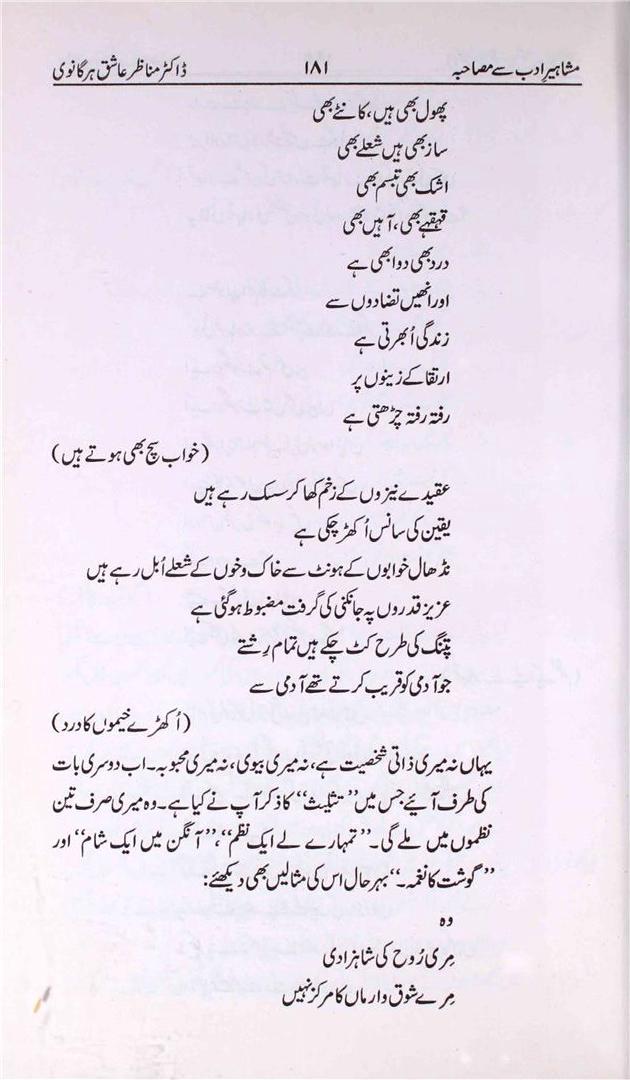 مشاہیرِ ادب سے مصاحبہ ۱۸۱ ڈاکٹر مناظر عاشق ہرگانوی
پھول بھی ہیں، کانٹے بھی
ساز بھی ہیں شعلے بھی
اشک بھی تبسم بھی
قہقہے بھی، آہیں بھی
درد بھی دوا بھی ہے
اور انھیں تضادوں سے
زندگی اُبھرتی ہے
ارتقا کے زینوں پر
رفتہ رفتہ چڑھتی ہے
(خواب سچ بھی ہوتے ہیں)
عقیدے نیزوں کے زخم کھا کر سسک رہے ہیں
یقین کی سانس اُکھڑ چکی ہے
نڈھال خوابوں کے ہونٹ سے خاک و خوں کے شعلے اُبل رہے ہیں
عزیز قدروں پہ جانکنی کی گرفت مضبوط ہوگئی ہے
پتنگ کی طرح کٹ چکے ہیں تمام رِشتے
جو آدمی کو قریب کرتے تھے آدمی سے
(اُکھڑے خیموں کا درد)
یہاں نہ میری ذاتی شخصیت ہے، نہ میری بیوی، نہ میری محبوبہ۔ اب دوسری بات
کی طرف آئیے جس میں ”تثلیث“ کا ذکر آپ نے کیا ہے۔ وہ میری صرف تین
نظموں میں ملے گی۔ ”تمہارے لے ایک نظم“، ”آنگن میں ایک شام“ اور
”گوشت کا نغمہ۔“ بہرحال اس کی مثالیں بھی دیکھئے:
وہ
مِری رُوح کی شاہزادی
مِرے شوق وارماں کا مرکز نہیں